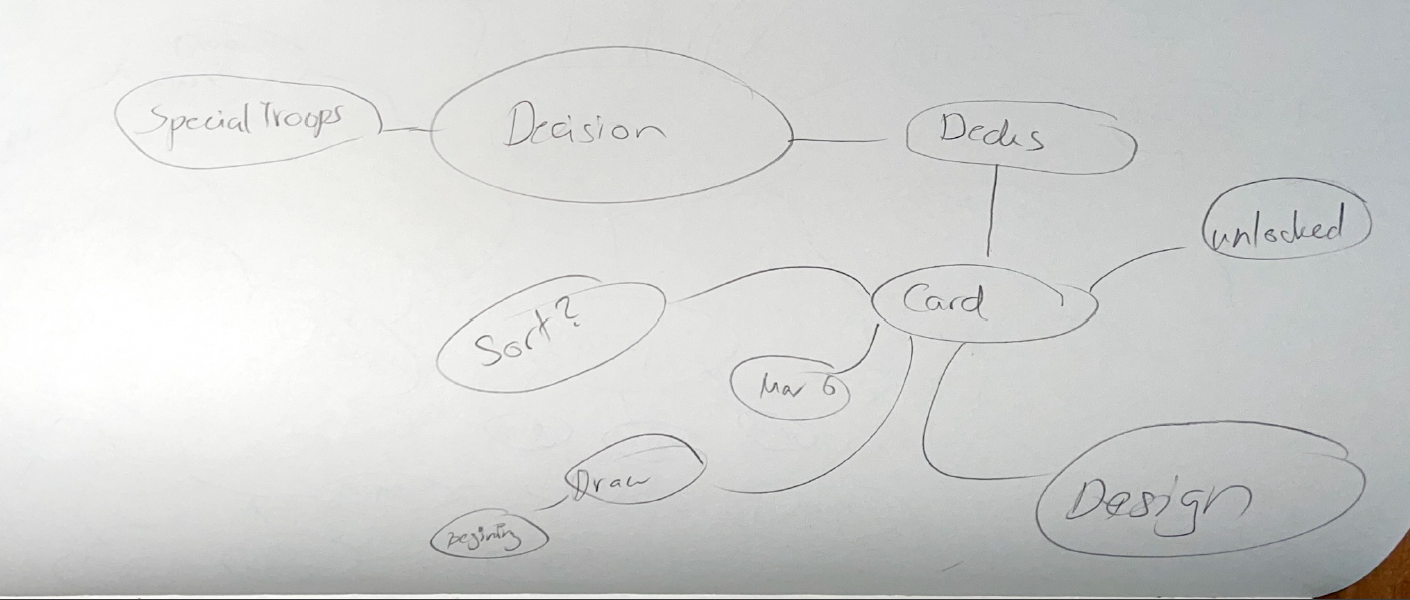 Special Troops
Decision
Decks
unlocked
Card
Sort?
Mar 6
Draw
Begining
Design